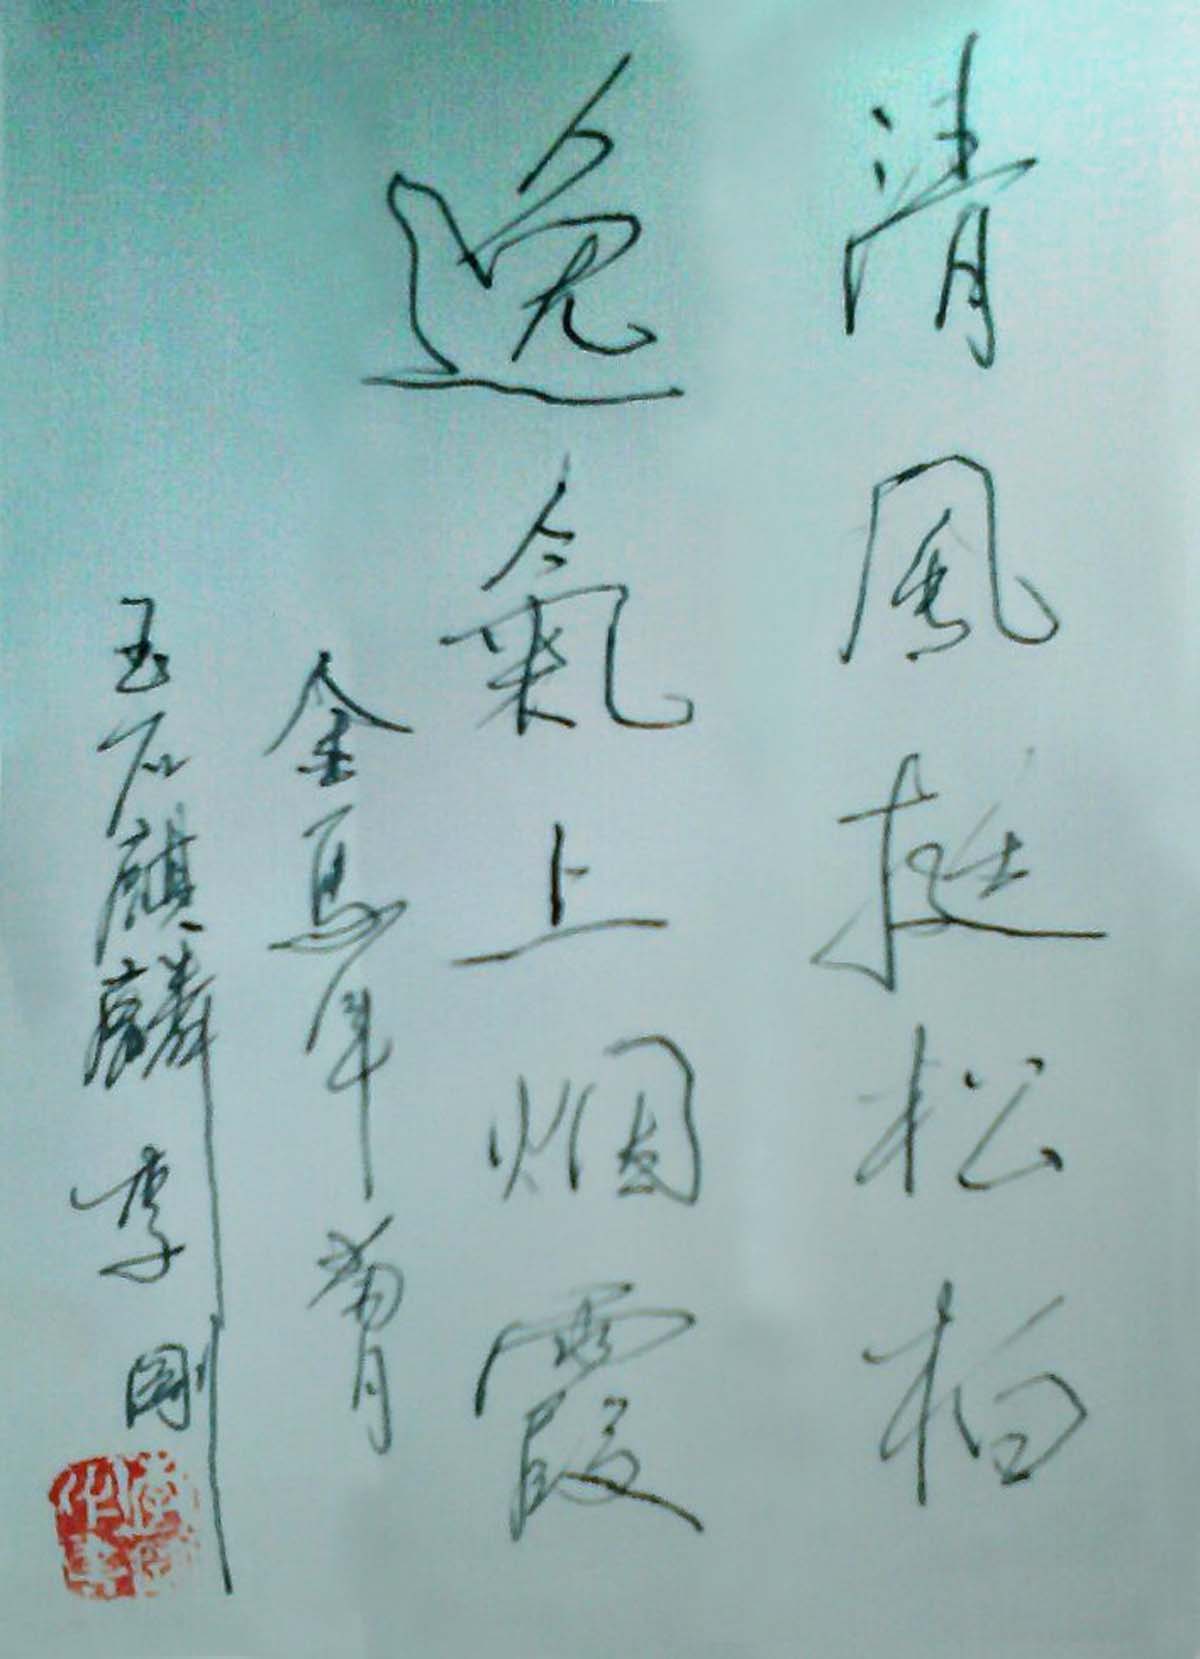 清風挺松柏
逸氣上烟霞
金馬年菊月
玉石麒麟 李剛